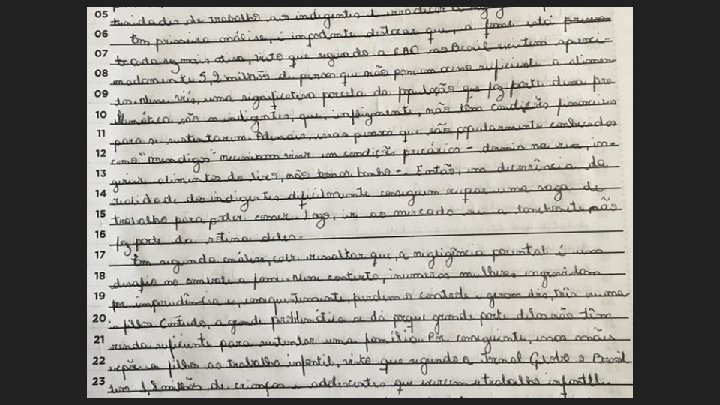 05 tunidades de trabalho aos indigentes e erradicar a
06 Em primeira análise, é importante destacar que, a fome está
07 mais ativa, visto que segundo a no Brasil existem aproxi-
08 madamente 5,2 milhões de pessoas que não possuem acesso suficiente a alimen-
09 tos. Nesse viés, uma significativa parcela da população que faz parte dessa pro-
10 blemática são os indigentes, que, infelizmente, não têm condições financeiras
11 para se sustentarem. Ademais, essas pessoas que são popularmente conhecidas
12 como "mendigos" necessitam viver em condição precária - dormir na rua, in-
13 gerir alimentos do lixo, não tomar banho -. Então, em decorrência da
14 realidade dos indigentes dificilmente conseguem ocupar uma vaga de
15 trabalho para poder comer. Logo, ir ao mercado ou a lanchonete, não
16 faz parte da rotina deles.
17 Em segunda análise, cabe ressaltar que, a negligência parental é um
18 desafio no combate a fome. Nesse contexto, inúmeras mulheres engravidam
19 por imprudência e, consequentemente, perdem o controle e geram dois, três ou ma-
20 is filhos. Contudo, a grande problemática se dá porque grande parte delas não têm
21 renda suficiente para sustentar uma família. Por conseguinte, essas mães
22 expõe os filhos ao trabalho infantil, visto que segundo o Jornal Globo o Brasil
23 tem 1,8 milhões de crianças e adolescentes que exercem o trabalho infantil.